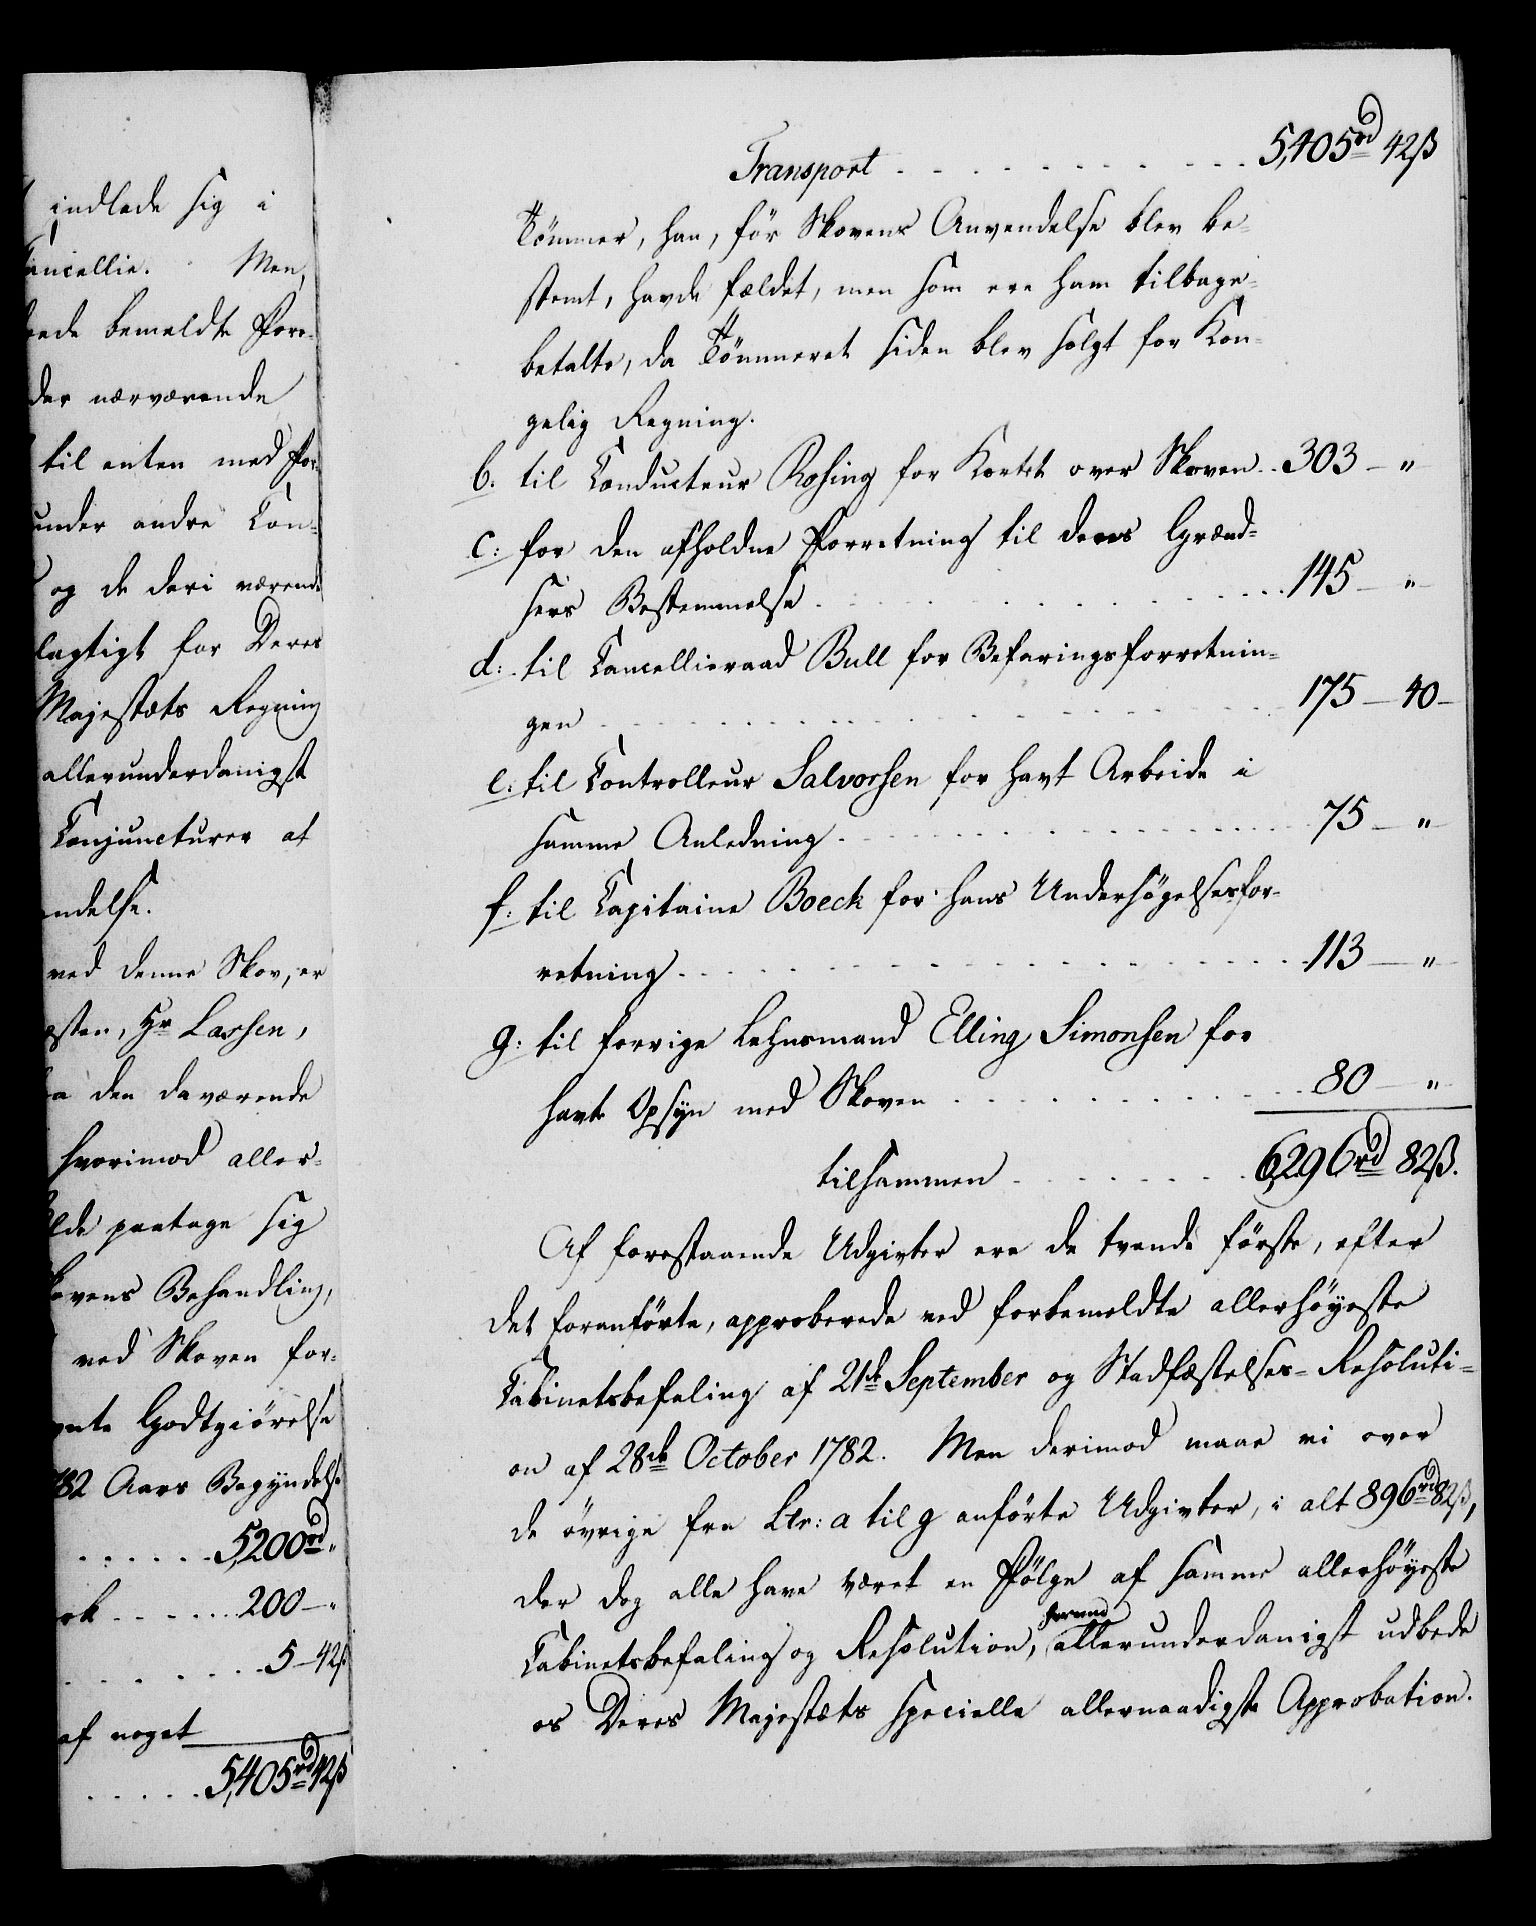 indlade sig i
ancellie. Men,
rede bemeldte Forr-
der nærværende
til enten med For-
under andre Con-
og de deri værende
lagtigt for Deres
Majestæts Regning
allerunderdanigst
Conjuncturer at
ndelse.
ved denne Skov, er
sten, Hr Lassen,
a den daværende
hvorimod aller-
lde paatage sig
ovens Behandling,
ved Skoven for-
nte Godtgiörelse
82 Aars Begyndelse
. . . . . . 5,200rd „
ek . . . . . . 200 — „
. . . . . . 5 — 42ß
af noget
. . . . . 5,405rd 42ß
Transport . . . . . . . . . 5,405rd 42ß
Tömmer, han, för Skovens Anvendelse blev be-
stemt, havde fældet, men som ere ham tilbage-
betalte, da Tömmeret siden blev solgt for Kon-
gelig Regning.
b. til Conducteur Rosing for Kortet over Skoven . . 303 — „
c: for den afholdne Forretning til dens Grænd-
sers Bestemmelse . . . . . . . . . 145 — „
d: til Cancellieraad Bull for Befaringsforretnin-
gen . . . . . . . . . 175 — 40 —
e: til Controlleur Salvorsen for havt Arbeide i
samme Anledning . . . . . . . . . 75 — „
f: til Capitaine Boeck for hans Undersögelsesfor-
retning . . . . . . . . . 113 — „
g: til forrige Lehnsmand Elling Simonsen for
havte Opsyn med Skoven . . . . . . . . . 80 — „
tilsammen . . . . . . . 6,296rd 82ß.
Af forestaaende Udgivter ere de tvende förste, efter
det foranförte, approberede ved forbemeldte allerhöyeste
Cabinetsbefaling af 21de September og Stadfæstelses-Resoluti-
on af 28de October 1782. Men derimod maae vi over
de övrige fra Ltr: a til g anförte Udgivter, i alt 896rd 82ß,
der dog alle have været en Fölge af samme allerhöyeste
Cabinetsbefaling og Resolution, allerunderdanigst udbede
os Deres Majestæts specielle allernaadigste Approbation.